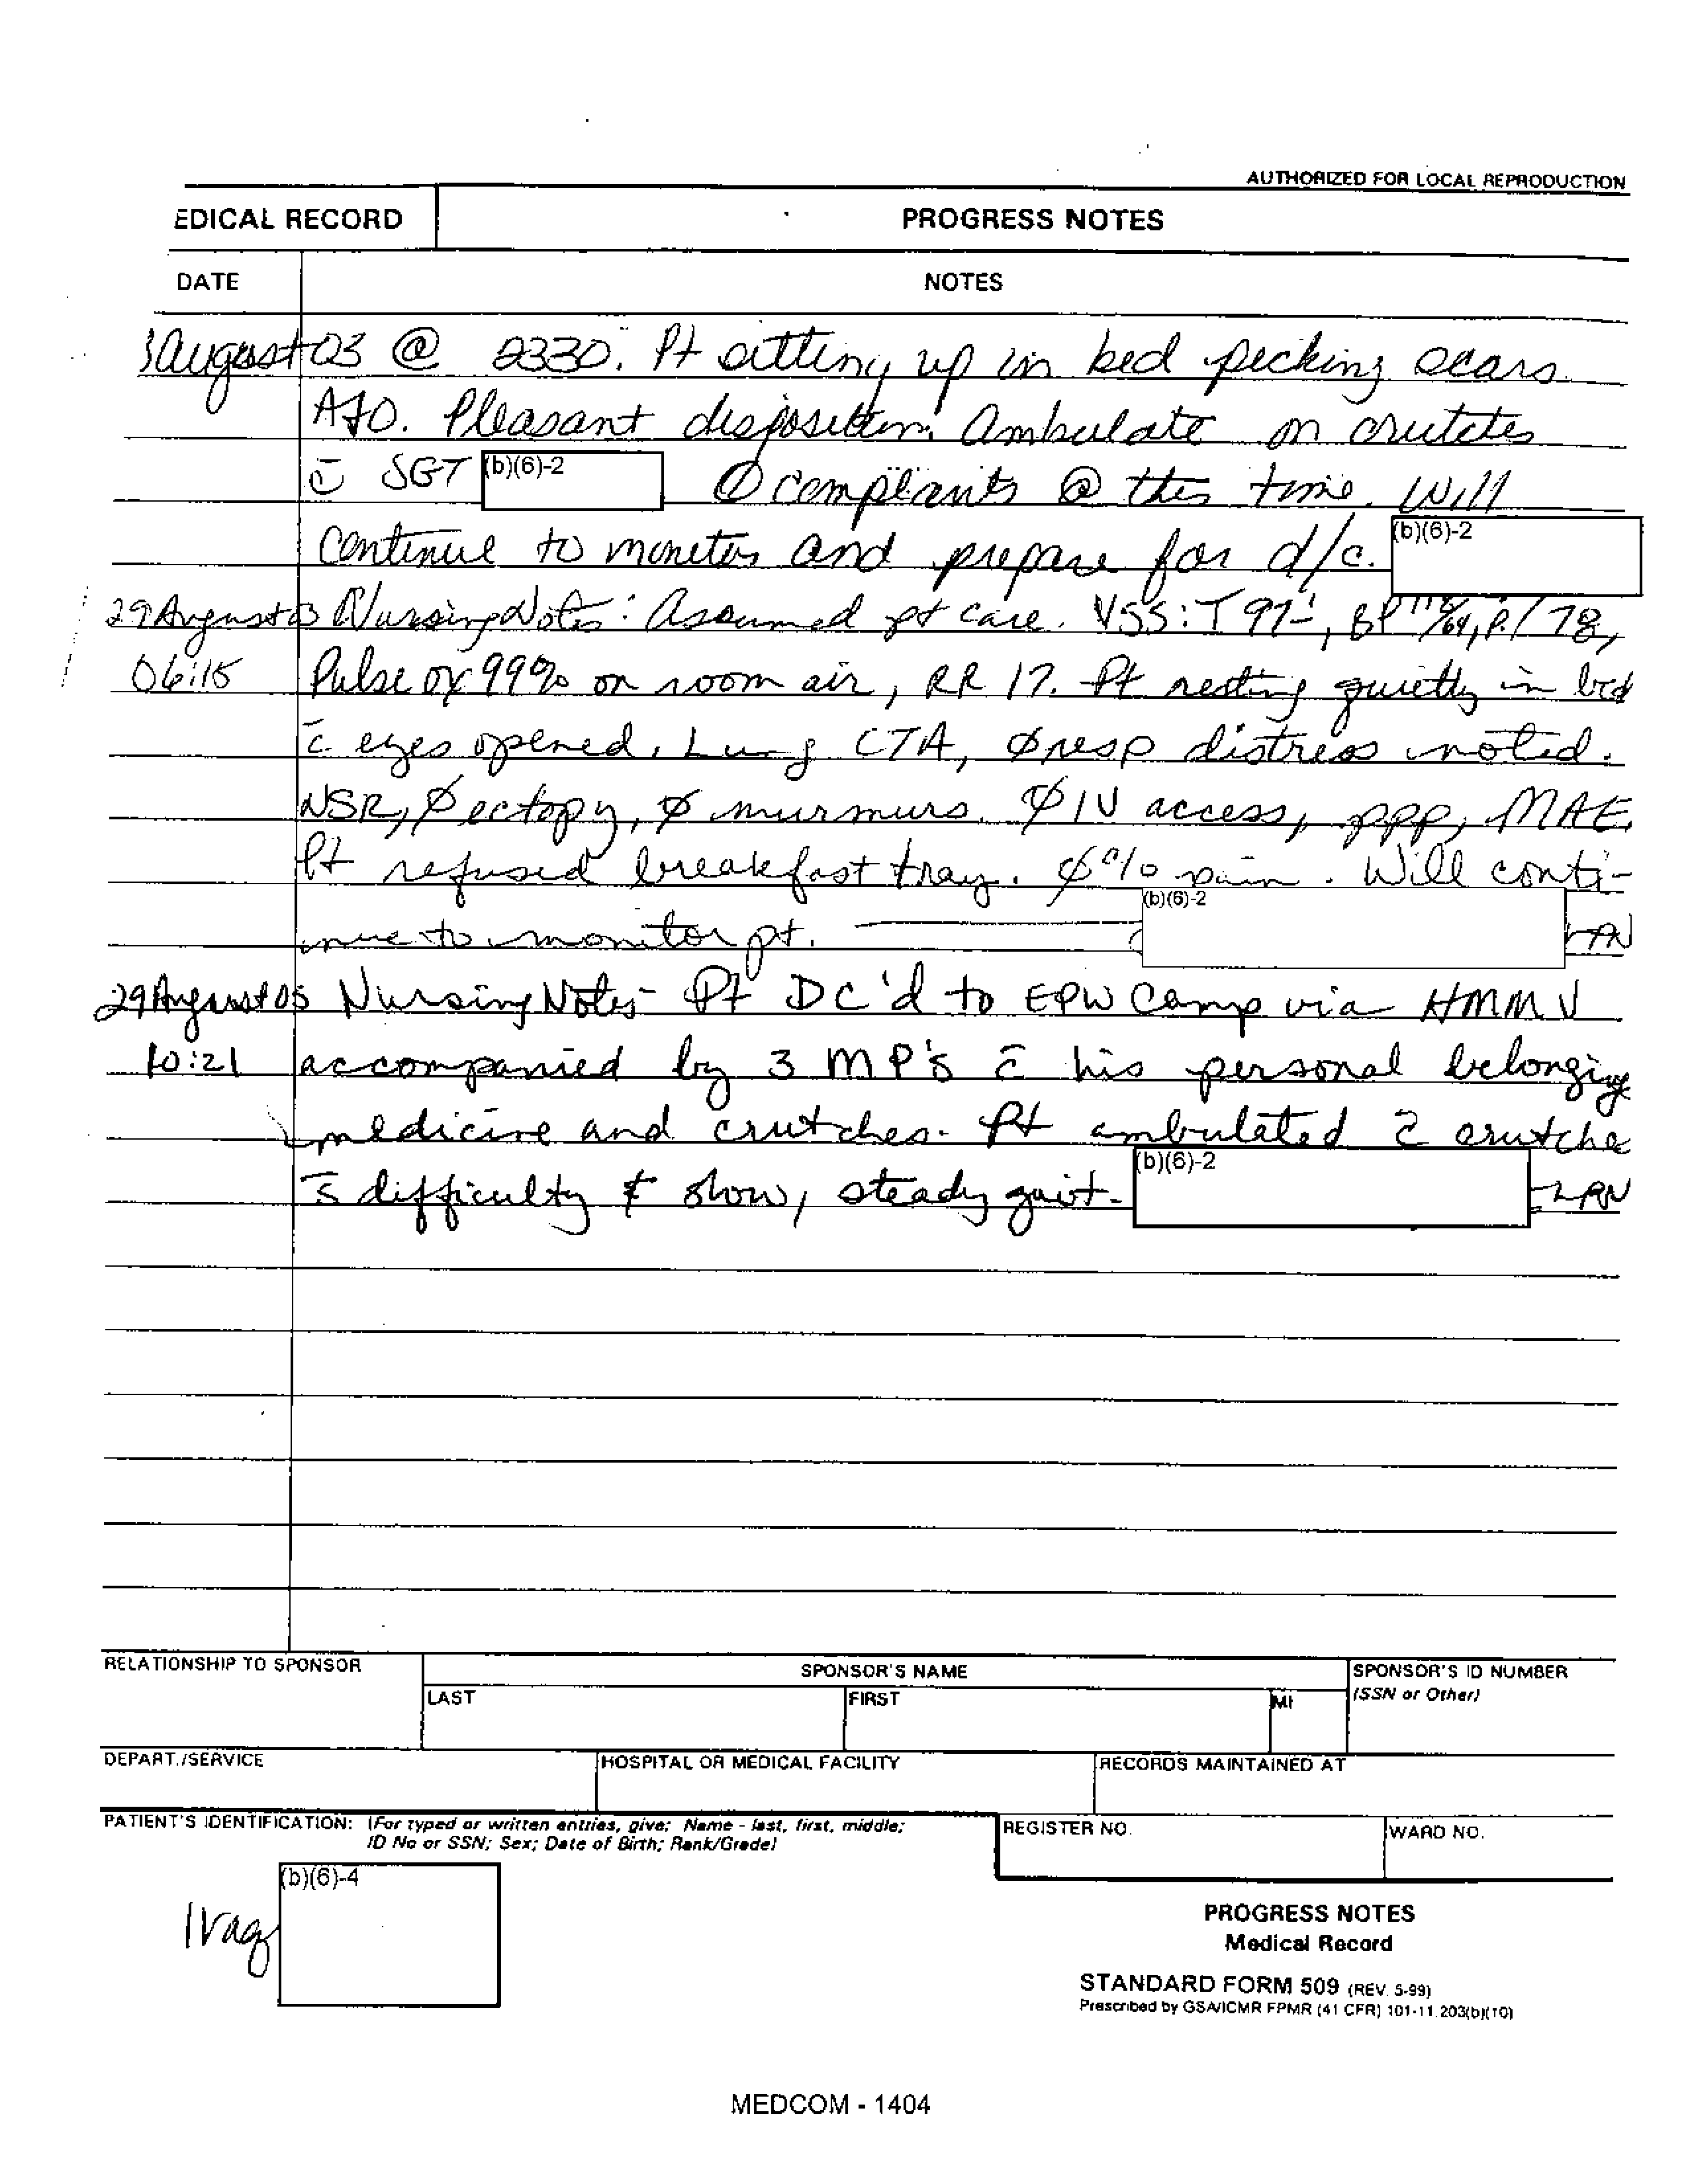 AUTHORIZED FOR LOCAL REPRODUCTION
EDICAL RECORD
PROGRESS NOTES
DATE
NOTES
August 03 @ 2330. Pt sitting up in bed pecking scars
A+O. Pleasant disposition. Ambulate on crutches
c̄ SGT (b)(6)-2 Ø complaints @ this time. Will
continue to monitor and prepare for d/c. (b)(6)-2
29 August 03 Nursing Note: Assumed pt care. VSS: T 97, BP 118/64, P. 78,
06:15 Pulse ox 99% on room air, RR 17. Pt resting quietly in bed
c̄ eyes opened. Lung CTA, Ø resp distress noted.
NSR, Ø ectopy, Ø murmurs. Ø IV access, ppp, MAE.
Pt refused breakfast tray. Ø c/o pain. Will conti-
nue to monitor pt. (b)(6)-2
29 August 03 Nursing Note- Pt DC'd to EPW Camp via HMMV
10:21 accompanied by 3 MP's c̄ his personal belonging
medicine and crutches. Pt ambulated 2 crutche
s̄ difficulty & slow, steady gait. (b)(6)-2
RELATIONSHIP TO SPONSOR
SPONSOR'S NAME
SPONSOR'S ID NUMBER
(SSN or Other)
LAST
FIRST
MI
DEPART./SERVICE
HOSPITAL OR MEDICAL FACILITY
RECORDS MAINTAINED AT
PATIENT'S IDENTIFICATION: (For typed or written entries, give: Name - last, first, middle;
ID No or SSN; Sex; Date of Birth; Rank/Grade)
REGISTER NO.
WARD NO.
(b)(6)-4
Iraq
PROGRESS NOTES
Medical Record
STANDARD FORM 509 (REV. 5-99)
Prescribed by GSA/ICMR FPMR (41 CFR) 101-11.203(b)(10)
MEDCOM - 1404